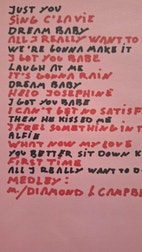 JUST YOU
SING C'LAVIE
DREAM BABY
ALL I REALLY WANT TO
WE'RE GONNA MAKE IT
I GOT YOU BABE
LAUGH AT ME
IT'S GONNA RAIN
DREAM BABY
HELLO JOSEPHINE
I GOT YOU BABE
I CAN'T GET NO SATISF
THEN HE KISSED ME
I FEEL SOMETHING IN T
ALFIE
WHAT NOW MY LOVE
YOU BETTER SIT DOWN K
FIRST TIME
ALL I REALLY WANT TO D
MEDLEY:
M./DIAMOND L CAMPB